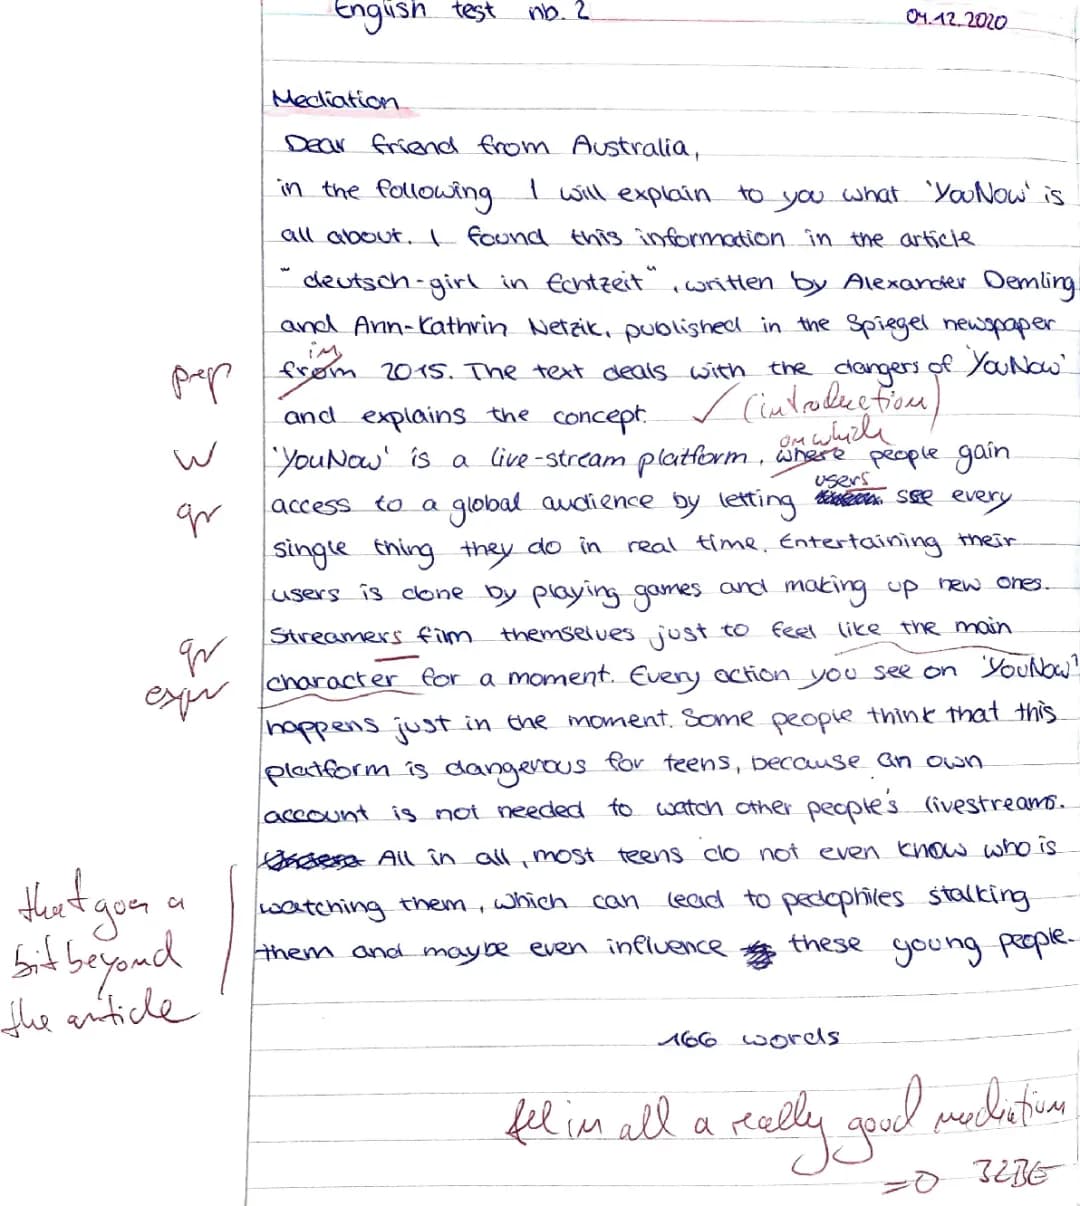 English test nb. 2 04.12.2020
Mediation
Dear friend from Australia,
in the following I will explain to you what 'YouNow' is
all about. I found this information in the article
"deutsch-girl in Echtzeit", written by Alexander Demling
and Ann-Kathrin Netzik, published in the Spiegel newspaper
in
prep from 2015. The text deals with the dangers of 'YouNow'
and explains the concept. ✓ (introduction)
on which
W 'YouNow' is a live-stream platform, where people gain
users
gr access to a global audience by letting see every
single thing they do in real time. Entertaining their
users is done by playing games and making up new ones.
gr Streamers film themselves just to feel like the main
expr character for a moment. Every action you see on 'YouNow'
happens just in the moment. Some people think that this
platform is dangerous for teens, because an own
account is not needed to watch other people's livestreams.
All in all, most teens do not even know who is
watching them, which can lead to pedophiles stalking
them and maybe even influence these young people.
that goes a
bit beyond
the article
166 words
all in all a really good mediation
=> 32BE